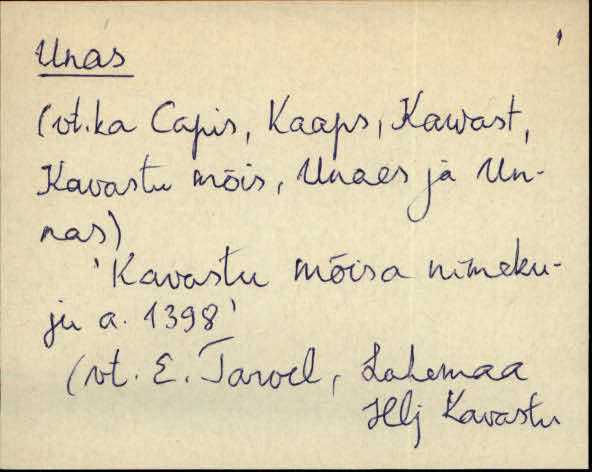 Unas
(vt. ka Capis, Kaaps, Kawast,
Kavastu mõis, Unaes ja Un-
nas)
'Kavastu mõisa nimeku-
ju a. 1398'
(vt. E. Tarvel, Lahemaa
Hlj Kavastu